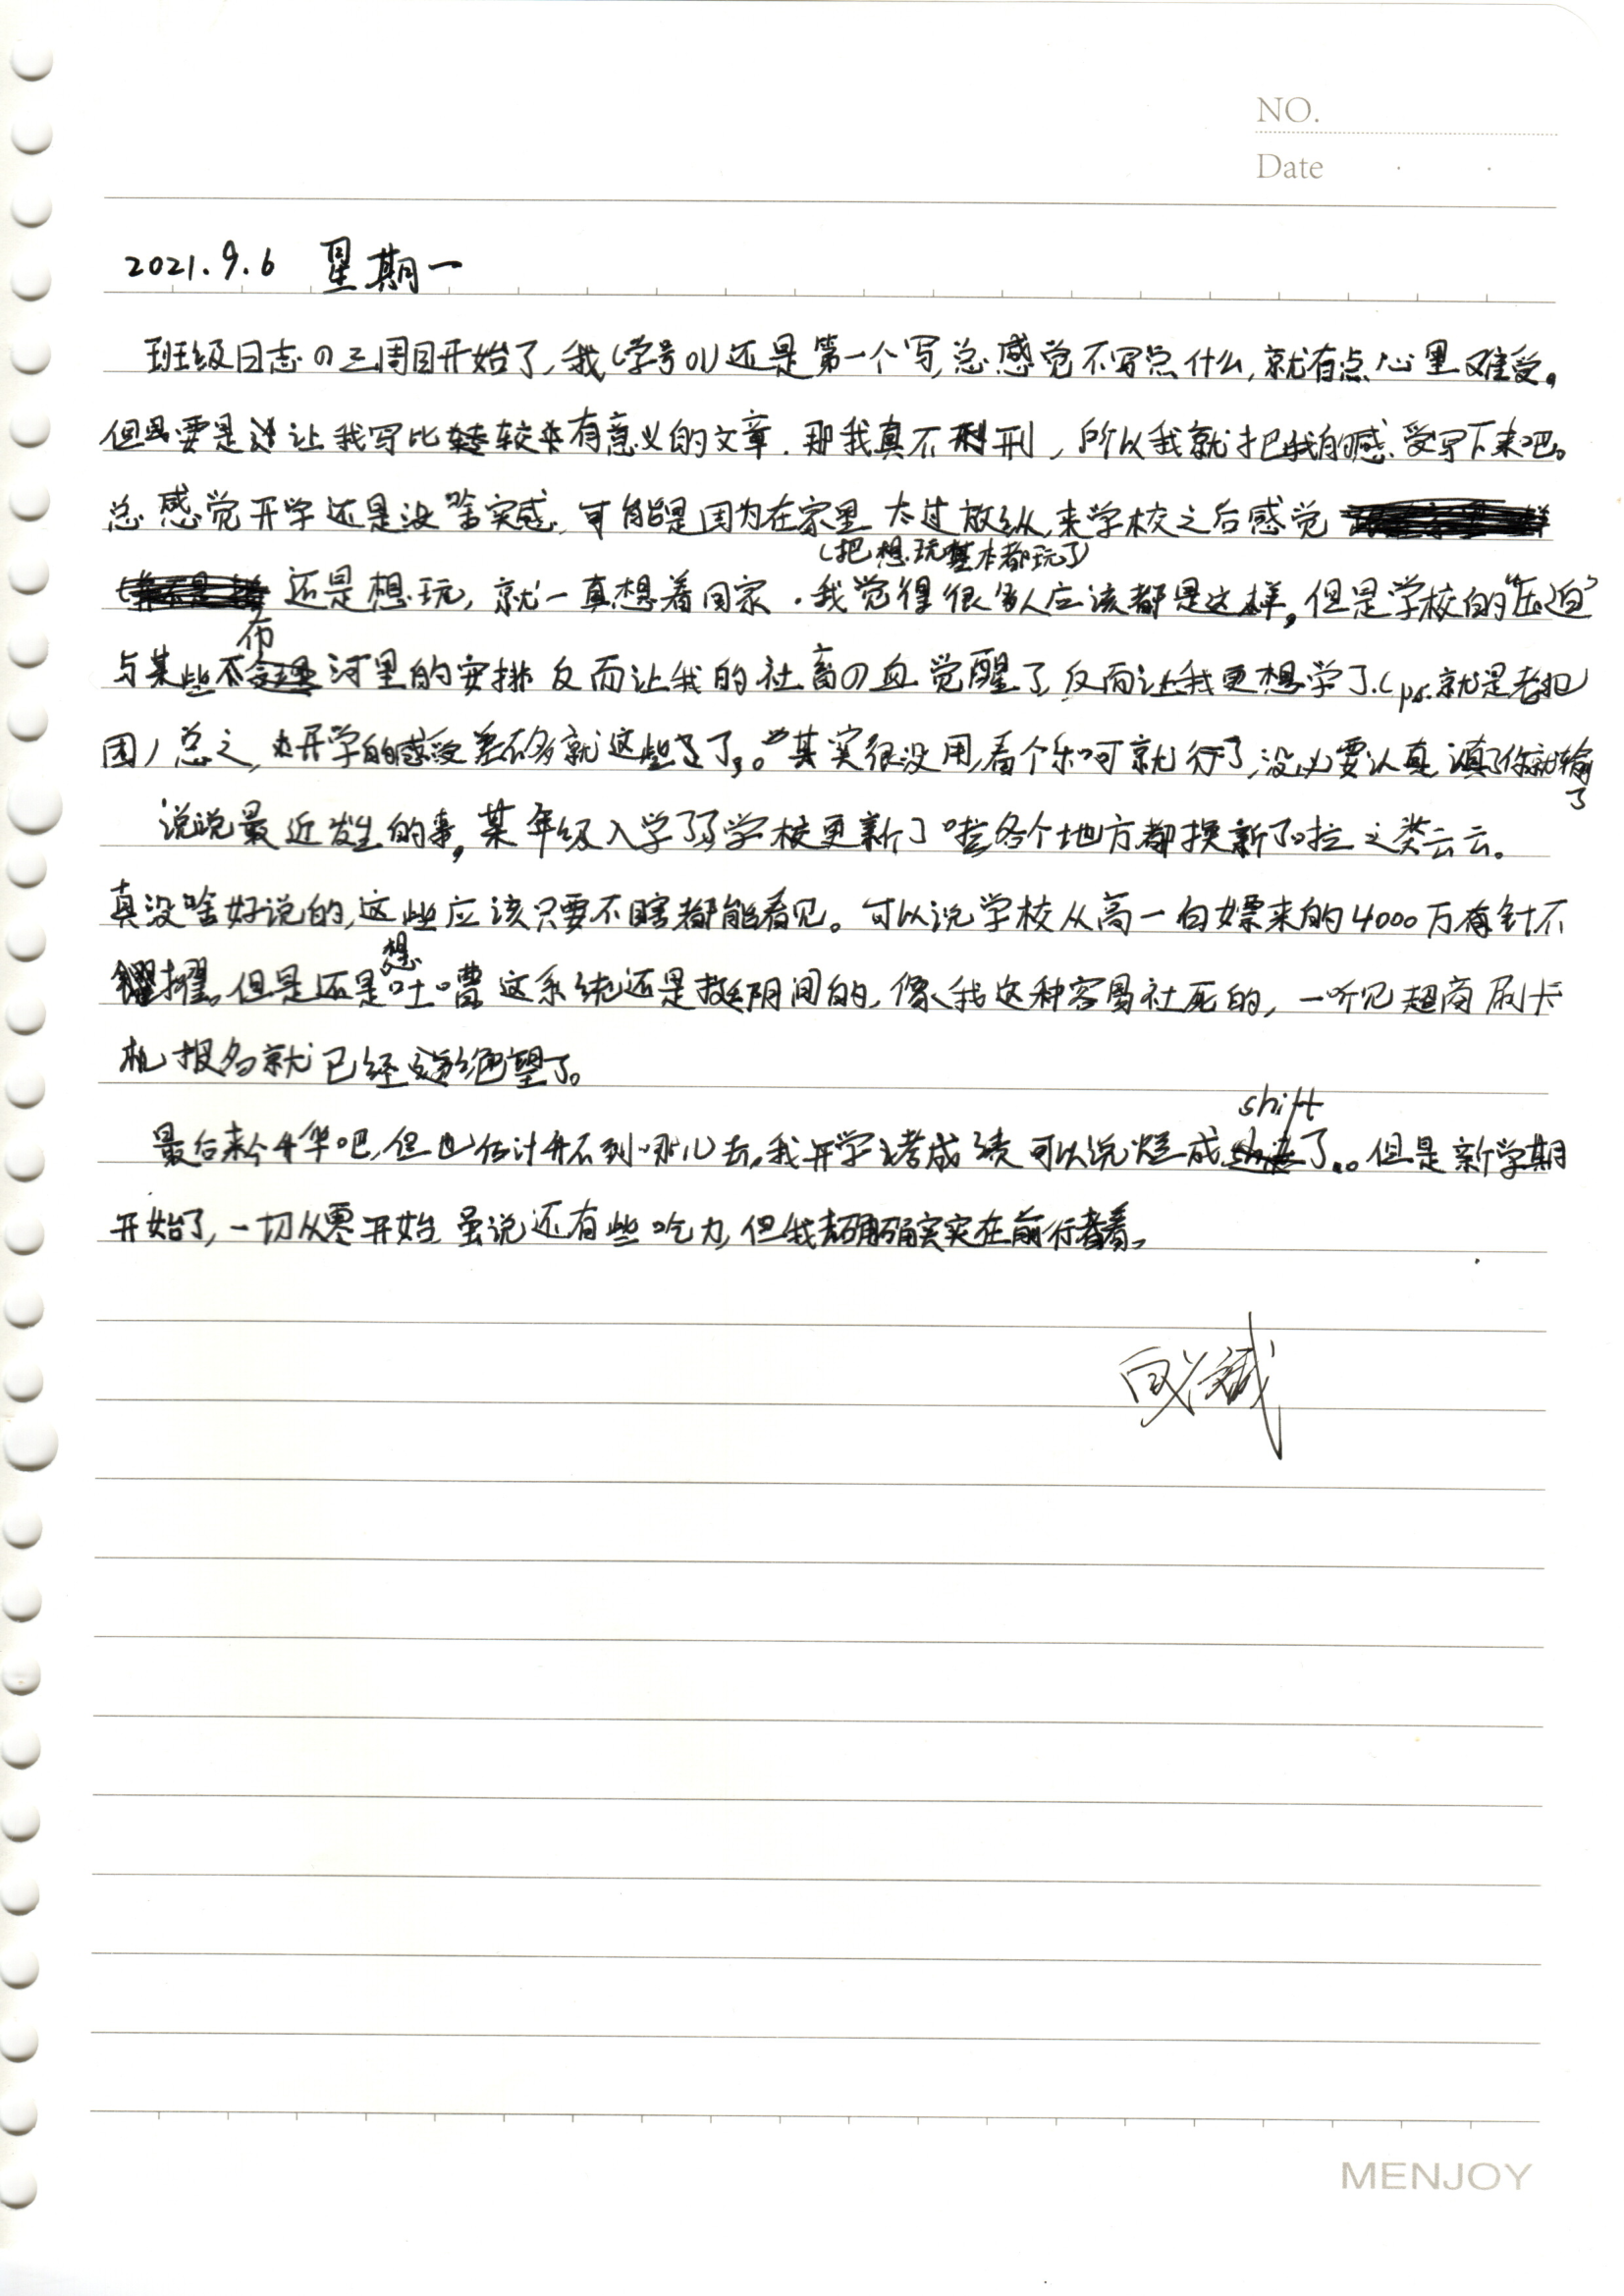 NO.
Date
2021.9.6 星期一
班级日志の三周目开始了,我(学号01)还是第一个写,总感觉不写点什么,就有点心里难受。
但要是让我写比较有意义的文章.那我真不刑,所以我就把我的感受写下来吧。
总感觉开学还是没啥实感,可能是因为在家里太过放纵,来学校之后感觉
(把想玩基本都玩了)
还是想玩,就一直想着回家.我觉得很多人应该都是这样,但是学校的“压迫”
与某些布河里的安排反而让我的社畜の血觉醒了,反而让我更想学了.(ps.就是老把
团)总之,开学的感受差不多就这些了。其实很没用,看个乐呵就行了,没必要认真,慎了你就输
了
说说最近发生的事,某年级入学了学校更新了啦各个地方都换新了啦之类云云。
真没啥好说的,这些应该只要不瞎都能看见。可以说学校从高一白嫖来的4000万有针不
擢。但是还是想吐嘈这系统还是挺阴间的,像我这种容易社死的,一听见超商刷卡
机报名就已经绝望了。
最后来个升华吧,但也估计升不到哪儿去,我开学考成绩可以说烂成shift了。但是新学期
开始了,一切从零开始 虽说还有些吃力,但我确确实实在前行着。
MENJOY